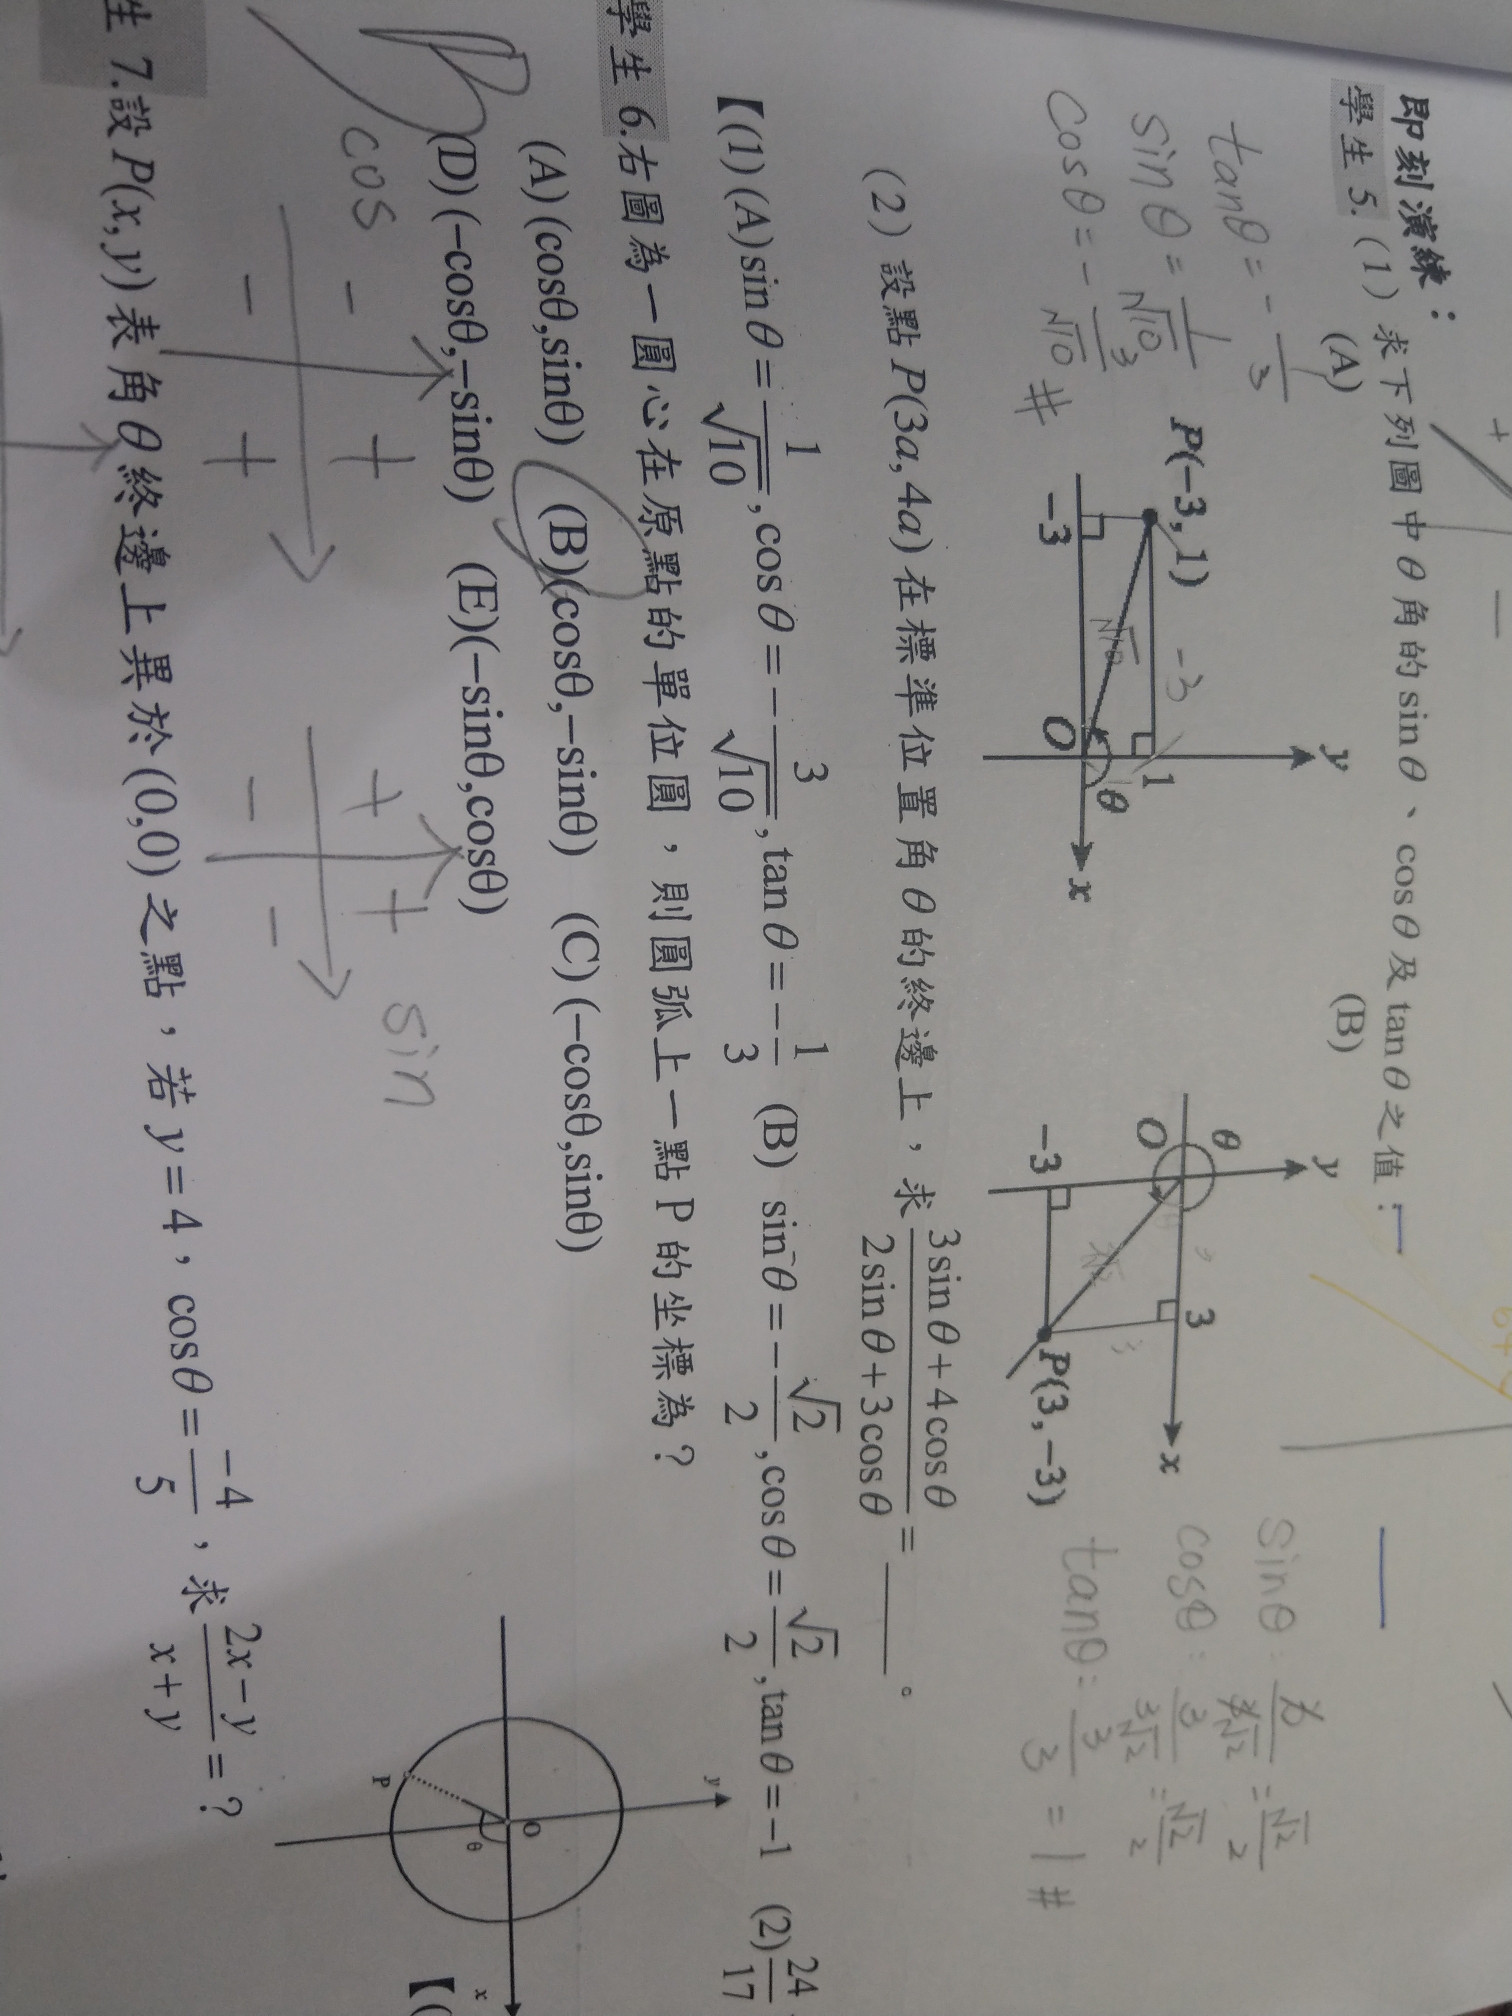 即刻演練：
學生 5.(1) 求下列圖中 θ 角的 sin θ、cos θ 及 tan θ 之值：
(A) (B)
P(-3,1) -3 √10 1 -3 O θ x y
θ O y 3 x -3 P(3,-3)
tanθ = - 1/3
sinθ = 1/√10
cosθ = - 3/√10 #
sinθ: = √2/2
cosθ: 3/3√2 = √2/2
tanθ: 3/3 = 1 #
(2) 設點 P(3a,4a) 在標準位置角 θ 的終邊上，求 (3sin θ+4cos θ)/(2sin θ+3cos θ) = ____。
【(1)(A) sin θ = 1/√10, cos θ = -3/√10, tan θ = -1/3 (B) sin θ = -√2/2, cos θ = √2/2, tan θ = -1 (2) 24/17
學生 6.右圖為一圓心在原點的單位圓，則圓弧上一點 P 的坐標為？
(A)(cosθ,sinθ) (B)(cosθ,-sinθ) (C)(-cosθ,sinθ)
(D)(-cosθ,-sinθ) (E)(-sinθ,cosθ)
y O θ P x
【(
cos - + - +
+ + - - sin
生 7.設 P(x,y) 表角 θ 終邊上異於 (0,0) 之點，若 y=4，cosθ = -4/5，求 (2x-y)/(x+y) = ?